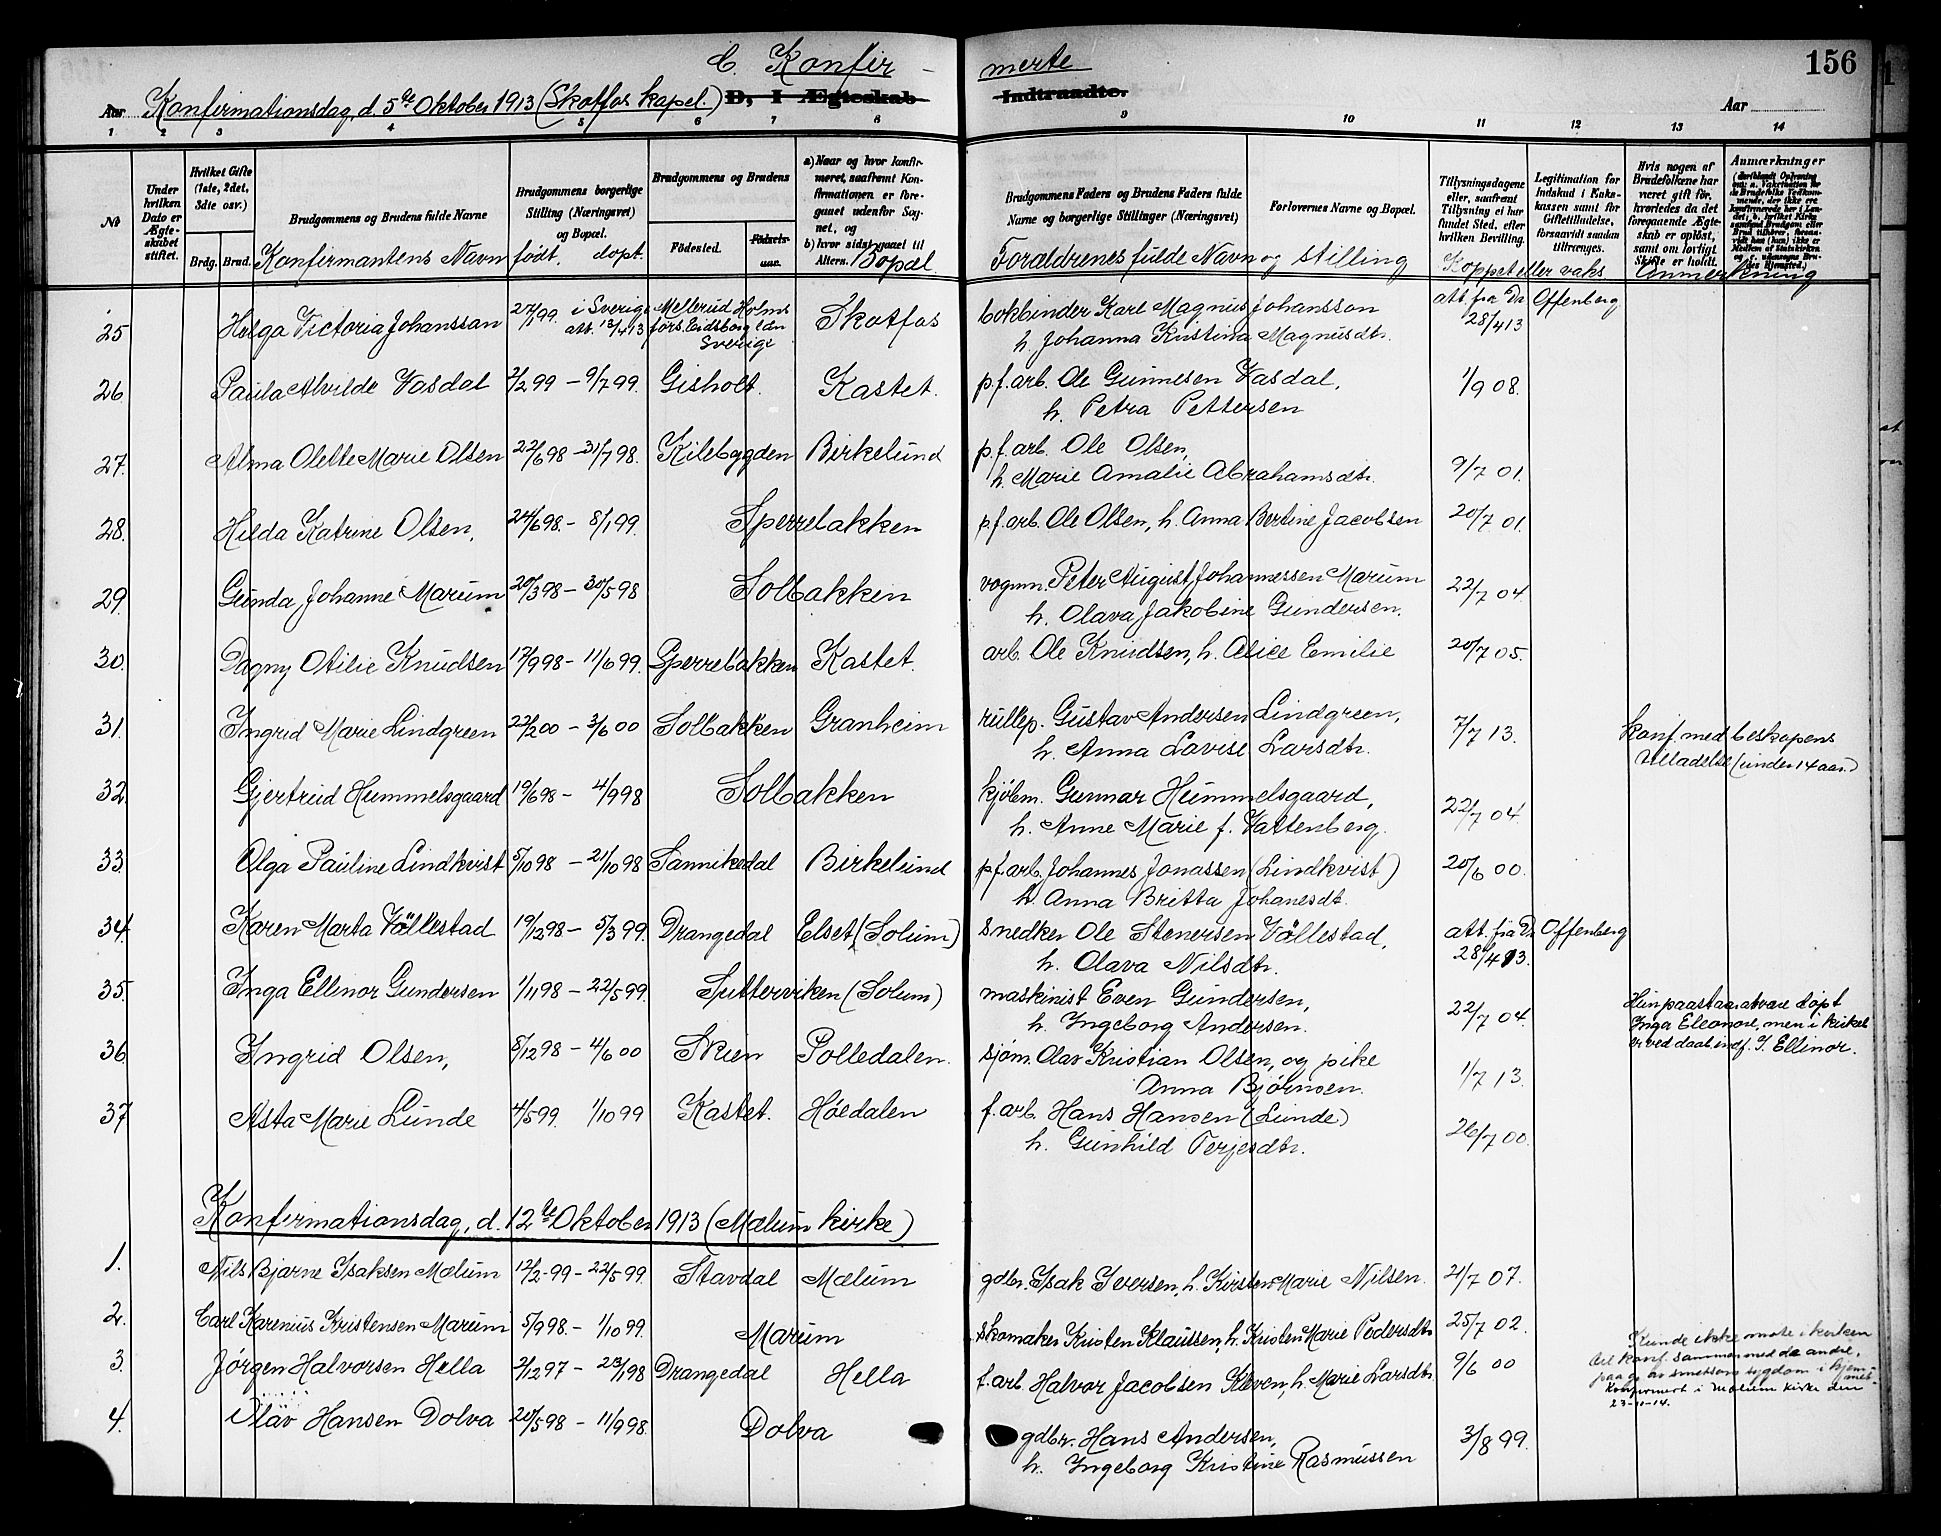 C. Konfir - merte
156
Aar Konfirmationsdag, d. 5te Oktober 1913 (Skotfos kapel.) D, I Ægteskab Indtraadte.
Aar
1 2 3 4 5 6 7 8 9 10 11 12 13 14
№
Under hvilken Dato er Ægteskabet stiftet.
Hvilket Gifte (1ste, 2det, 3die osv.)
Brdg. Brud.
Brudgommens og Brudens fulde Navne
Konfirmantens Navn
Brudgommens borgerlige Stilling (Næringsvei) og Bopæl.
født. døpt.
Brudgommens og Brudens
Fødested. Fødselsaar.
a) Naar og hvor konfirmeret, saafremt Konfirmationen er foregaaet udenfor Sognet, og
b) hvor sidst gaaet til Altern. Bopæl
Brudgommens Faders og Brudens Faders fulde Navne og borgerlige Stillinger (Næringsvei)
Forlovernes Navne og Bopæl.
Forældrenes fulde Navn og stilling
Tillysningsdagene eller, saafremt Tillysning ei har fundet Sted, efter hvilken Bevilling.
Legitimation for Indskud i Enkekassen samt for Giftetilladelse, forsaavidt saadan tiltrænges.
Koppet eller vaks
Hvis nogen af Brudefolkene har været gift før, hvorledes da det foregaaende Ægteskab er opløst, samt om lovligt Skifte er holdt.
Anmærkninger
Anmerkning
25 Helga Victoria Johansson 27/1 99. i Sverige att. 13/4 13 Mellerud Holms førs. Eidsborg len Sverige Skotfos bokbinder Karl Magnus Johansson att. fra Dr Offenberg
h. Johanna Kristina Magnusdtr. 28/4 13
26 Paula Alvilde Vasdal 2/2 99 - 9/7 99. Gisholt. Kastet. p.f.arb. Ole Gunnesen Vasdal, 1/9 08.
h. Petra Pettersen
27. Alma Olette Marie Olsen 22/6 98 - 31/7 98. Kilebygden Birkelund p.f.arb. Ole Olsen,
h. Marie Amalie Abrahamsdtr. 9/7 01.
28. Hilda Katrine Olsen, 24/6 98. - 8/1 99. Sperrebakken p.f.arb. Ole Olsen, h. Anna Bertine Jacobsen 20/7 01.
29. Gunda Johanne Marum 20/3 98 - 30/5 98 Solbakken vognm. Peter August Johannessen Marum 22/7 04.
h. Olava Jakobine Gundersen.
30. Dagny Otilie Knudsen 17/9 98 - 11/6 99. Sperrebakken Kastet. arb. Ole Knudsen, h. Alice Emilie 20/7 05.
31. Ingrid Marie Lindgreen 22/2 00 - 3/6 00 Solbakken Granheim rullep. Gustav Andersen Lindgreen, 7/7 13. konf. med beskopens
h. Anna Lovise Larsdtr. tilladelse (under 14 aar.)
32. Gjertrud Hummelsgaard 19/6 98 - 4/9 98 Solbakken kjølm. Gunnar Hummelsgaard,
h. Anne Marie f. Vattenberg. 22/7 04.
33. Olga Pauline Lindkvist 5/10 98 - 21/10 98 Sannikedal Birkelund p.f.arb. Johannes Jonassen (Lindkvist) 20/6 00.
h. Anna Britta Johanesdt.
34. Karen Marta Vållestad 19/12 98 - 5/3 99. Drangedal Elset (Solum) Snedker Ole Stenersen Vållestad, att. fra Dr Offenberg
h. Olava Nilsdtr. 28/4 13.
35. Inga Ellinor Gundersen 1/11 98 - 22/5 99. Sutterviken (Solum) maskinist Even Gundersen, 22/7 04. Hun paastaar at være døpt
h. Ingeborg Andersen. Inga Eleonore, men i kirkeb
36. Ingrid Olsen, 8/12 98 - 4/6 00 Skien Polledalen. sjøm. Olav Kristian Olsen, og pike er ved daab indf. I. Ellinor.
Anna Bjørnsen. 1/7 13.
37 Asta Marie Lunde 4/5 99. 1/10 99 Kastet. Høedalen f.arb. Hans Hansen (Lunde)
h. Gunhild Terjesdtr. 26/7 00.
Konfirmationsdag, d. 12te Oktober 1913 (Mælum kirke)
1. Nils Bjarne Isaksen Mælum 12/2 - 99 - 22/5 99. Stavdal Mælum gdbr. Isak Iversen, h. Kirsten Marie Nilsen. 21/7 07.
2. Carl Karenius Kristensen Marum 5/9 98. - 1/10 99. Marum Skomaker Kristen Klaussen, h. Kristen Marie Pedersdtr 25/7 02.
3. Jørgen Halvorsen Hella 2/12 97 - 23/1 98 Drangedal Hella f.arb. Halvor Jacobsen Kleven, h. Marie Larsdtr. 9/6 00
Kunde ikke møte i kirken
til konf. sammen med de andre,
paa gr. av smetsom sygdom i hjem-
met
Konfirmert i Mælum kirke den
23-10-14.
4. Olav Hansen Dolva 20/5 98 - 11/9 98. Dolva gdbr. Hans Andersen, 3/8 99.
h. Ingeborg Kristine Rasmussen